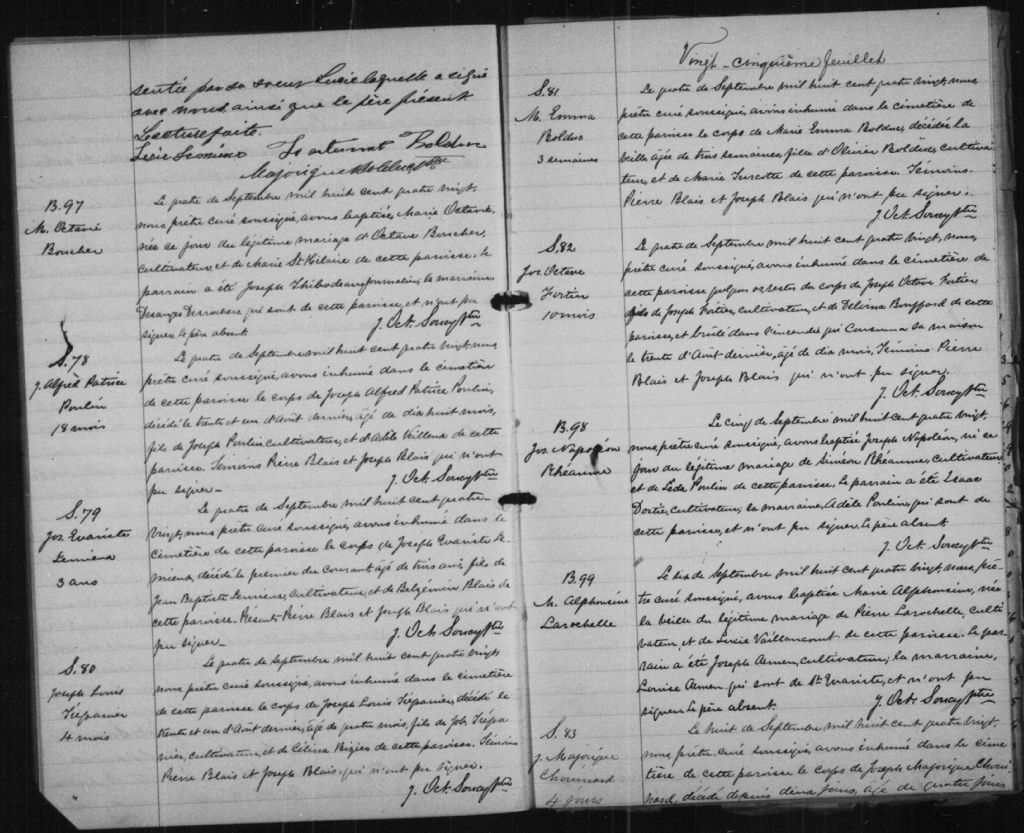 sentée par sa soeur Lucie laquelle a signé
avec nous ainsi que le père présent.
Lecture faite.
Lucie Lessieur Fortunat Bolduc
Majorique Bolduc Ptre
B.97
M. Octavie
Boucher
Le quatre de Septembre mil huit cent quatre vingt,
nous, prêtre curé soussigné, avons baptisé, Marie Octavie,
née ce jour du légitime mariage d'Octave Boucher,
cultivateur, et de Marie St Hilaire de cette paroisse. Le
parrain a été Joseph Thibodeau journalier, la marraine
Desanges Derochers qui sont de cette paroisse, et n'ont pu
signer le père absent. J. Oct. Soucy Ptre
S.78
J. Alfred Patrice
Poulin
18 mois
Le quatre de Septembre mil huit cent quatre vingt, nous,
prêtre curé soussigné, avons inhumé dans le cimetière
de cette paroisse le corps de Joseph Alfred Patrice Poulin,
décédé le trente et un d'Août dernier, âgé de dix huit mois,
fils de Joseph Poulin cultivateur, et d'Adèle Veilleux de cette
paroisse. Témoins Pierre Blais et Joseph Blais qui n'ont
pu signer. J. Oct. Soucy Ptre
S.79
Jos. Evariste
Lemieux
3 ans
Le quatre de Septembre mil huit cent quatre-
vingt, nous prêtre curé soussigné, avons inhumé dans le
cimetière de cette paroisse le corps de Joseph Evariste Le-
mieux, décédé le premier du courant âgé de trois ans, fils de
Jean Baptiste Lemieux, cultivateur, et de Belzémire Blais de
cette paroisse. Présents Pierre Blais et Joseph Blais qui n'ont
pu signer. J. Oct. Soucy Ptre
S.80
Joseph Louis
Trépanier
4 mois
Le quatre de Septembre mil huit cent quatre vingt,
nous prêtre curé soussigné, avons inhumé dans le cimetière
de cette paroisse le corps de Joseph Louis Trépanier, décédé le
trente et un d'Août dernier, âgé de quatre mois, fils de Job Trépa
nier, cultivateur, et de Célina Bizier de cette paroisse. Témoins
Pierre Blais et Joseph Blais, qui n'ont pu signer.
J. Oct. Soucy Ptre
Vingt-cinquième feuillet
S.81
M. Emma
Bolduc
3 semaines
Le quatre de Septembre mil huit cent quatre vingt, nous
prêtre curé soussigné, avons inhumé dans le cimetière de
cette paroisse le corps de Marie Emma Bolduc, décédée la
veille, âgée de trois semaines, fille d'Olivier Bolduc, cultiva-
teur, et de Marie Turcotte de cette paroisse. Témoins
Pierre Blais et Joseph Blais qui n'ont pu signer.
J. Oct. Soucy Ptre
S.82
Jos. Octave
Fortier
10 mois
Le quatre de Septembre mil huit cent quatre vingt, nous,
prêtre curé soussigné, avons inhumé dans le cimetière de
cette paroisse quelques os restes du corps de Joseph Octave Fortier
fils de Joseph Fortier, cultivateur, et de Delvina Bouffard de cette
paroisse, et brûlé dans l'incendie qui Consuma sa maison
le trente d'Août dernier, âgé de dix mois. Témoins Pierre
Blais et Joseph Blais qui n'ont pu signer.
J. Oct. Soucy Ptre
B.98
Jos. Napoléon
Rhéaume
Le cinq de Septembre mil huit cent quatre vingt,
nous, prêtre curé soussigné, avons baptisé Joseph Napoléon, né ce
jour du légitime mariage de Siméon Rhéaume, cultivateur
et de Léda Poulin de cette paroisse. Le parrain a été Isaac
Dostie, cultivateur, la marraine, Adèle Poulin, qui sont de
cette paroisse, et n'ont pu signer. Le père absent.
J. Oct. Soucy Ptre
B.99
M. Alphonsine
Larochelle
Le six de Septembre mil huit cent quatre vingt, nous, prê-
tre curé soussigné, avons baptisé Marie Alphonsine, née
la veille du légitime mariage de Pierre Larochelle, culti
vateur, et de Lucie Vaillancourt de cette paroisse. Le par-
rain a été Joseph cultivateur, la marraine,
Louise qui sont de St Evariste, et n'ont pu
signer. Le père absent. J. Oct. Soucy Ptre
S.83
J. Majorique
Chouinard
4 jours
Le huit de Septembre mil huit cent quatre vingt,
nous, prêtre curé soussigné, avons inhumé dans le cime
tière de cette paroisse le corps de Joseph Majorique Choui
nard, décédé depuis deux jours, âgé de quatre jours